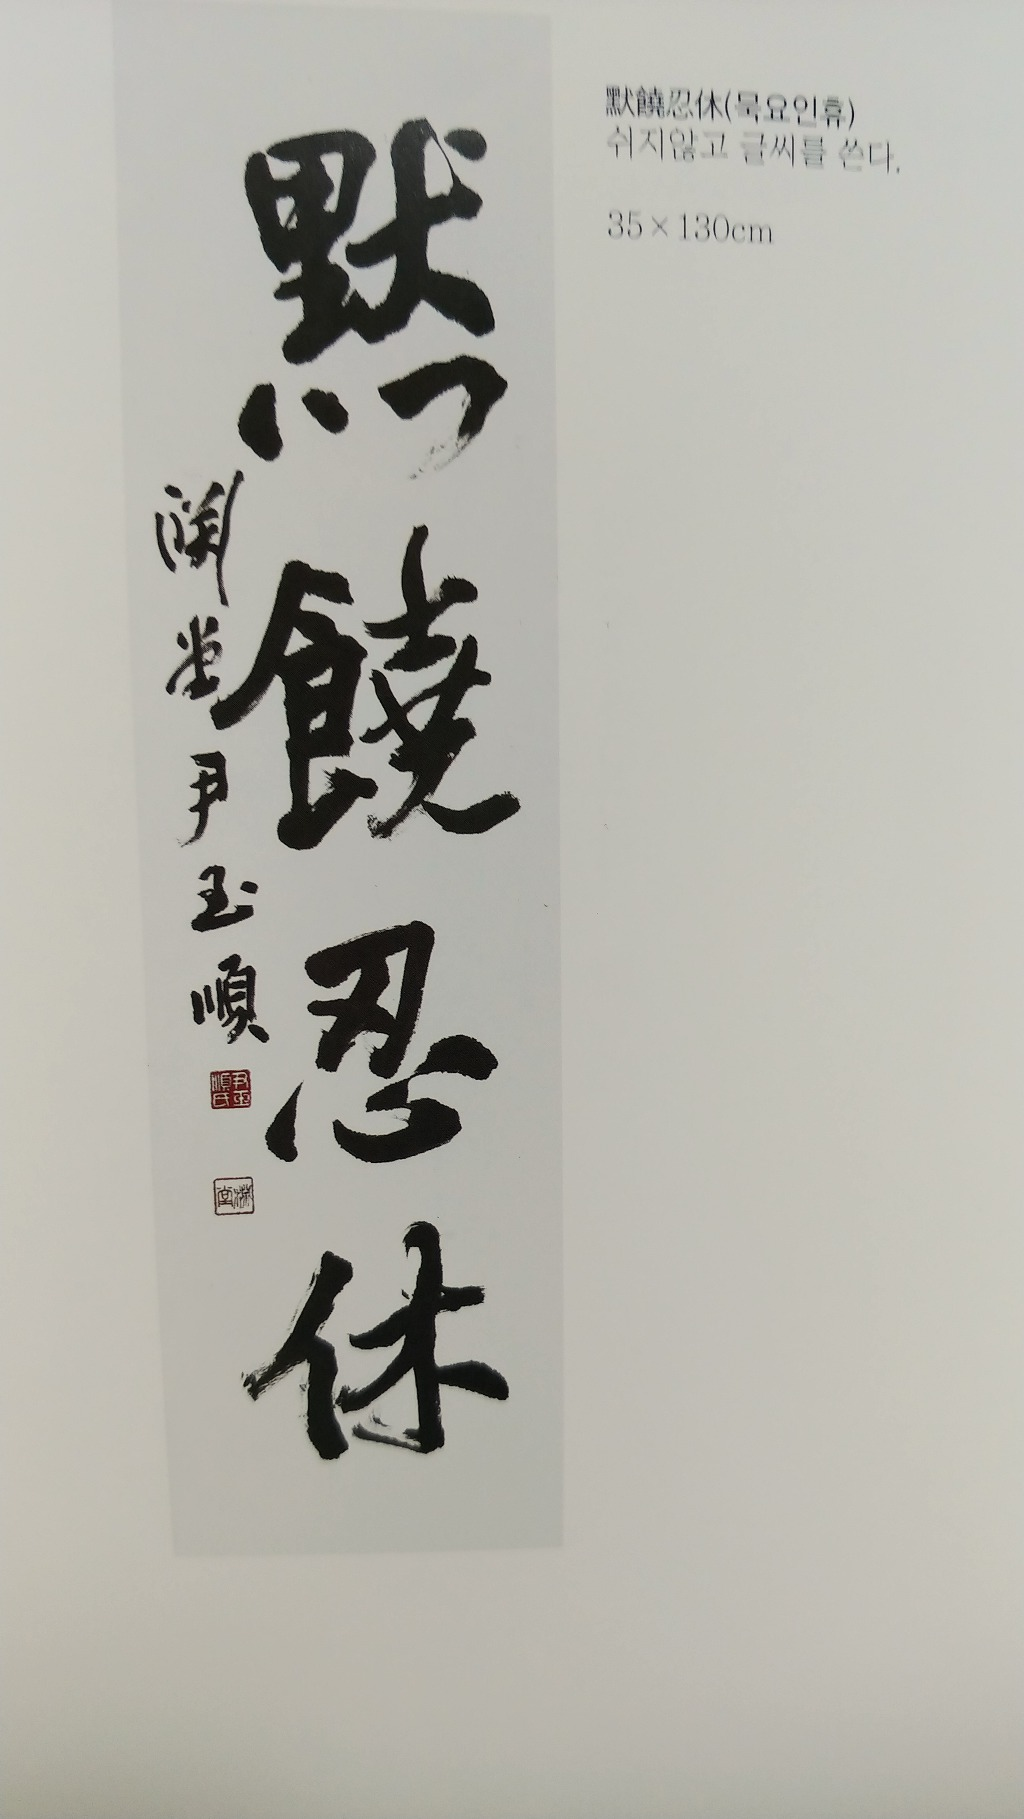 默饒忍休
堂尹玉順
尹玉
順氏
堂
默饒忍休(묵요인휴)
쉬지않고 글씨를 쓴다.
35×130cm